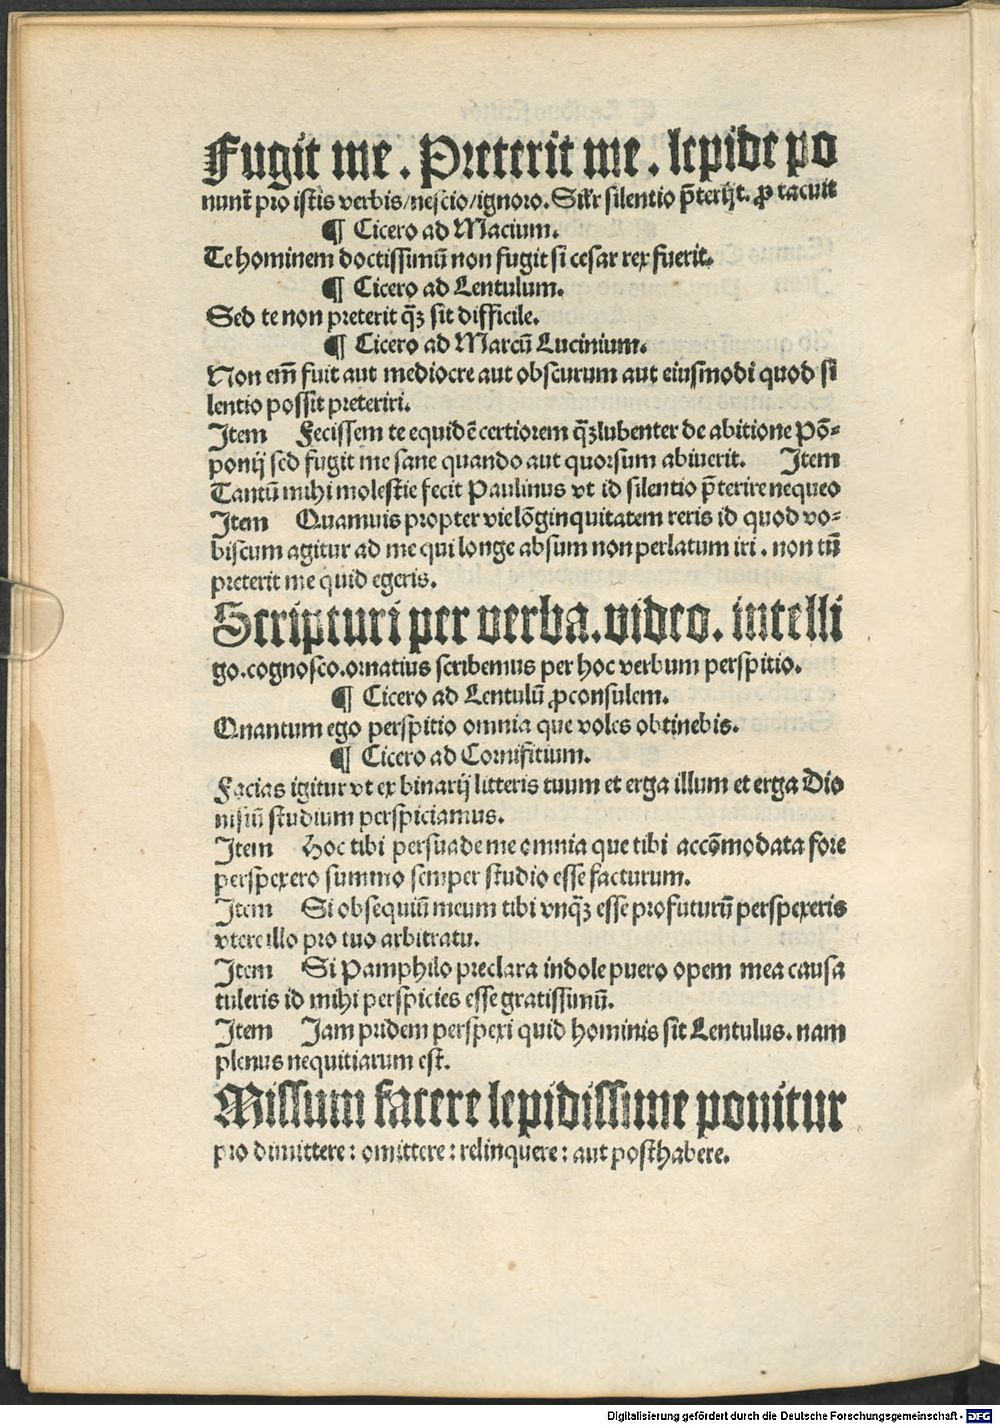 Fugit me. Preterit me. lepide po
nunt̄ pro istis verbis/nescio/ignoro. Sil'r silentio p̄terijt. ꝓ tacuit
¶ Cicero ad Macium.
Te hominem doctissimū non fugit si cesar rex fuerit.
¶ Cicero ad Lentulum.
Sed te non preterit q̄ꝫ sit difficile.
¶ Cicero ad Marcū Lucinium.
Non em̄ fuit aut mediocre aut obscurum aut eiusmodi quod si
lentio possit preteriri.
Item Fecissem te equidē certiorem q̄ꝫ lubenter de abitione Pō-
ponij sed fugit me sane quando aut quorsum abiuerit. Item
Tantū mihi molestie fecit Paulinus vt id silentio p̄terire nequeo
Item Quamuis propter vie lōginquitatem reris id quod vo-
biscum agitur ad me qui longe absum non perlatum iri. non tn̄
preterit me quid egeris.
Scripturi per verba. video. intelli
go. cognosco. ornatius scribemus per hoc verbum perspitio.
¶ Cicero ad Lentulū ꝓconsulem.
Quantum ego perspitio omnia que voles obtinebis.
¶ Cicero ad Cornifitium.
Facias igitur vt ex binarij litteris tuum et erga illum et erga Dio
nisiū studium perspiciamus.
Item Hoc tibi persuade me omnia que tibi accōmodata fore
perspexero summo semper studio esse facturum.
Item Si obsequiū meum tibi vnq̄ꝫ esse profuturū perspexeris
vtere illo pro tuo arbitratu.
Item Si Pamphilo preclara indole puero opem mea causa
tuleris id mihi perspicies esse gratissimū.
Item Jam pridem perspexi quid hominis sit Lentulus. nam
plenus nequitiarum est.
Missum facere lepidissime ponitur
pro dimittere: omittere: relinquere: aut posthabere.
Digitalisierung gefördert durch die Deutsche Forschungsgemeinschaft - DFG